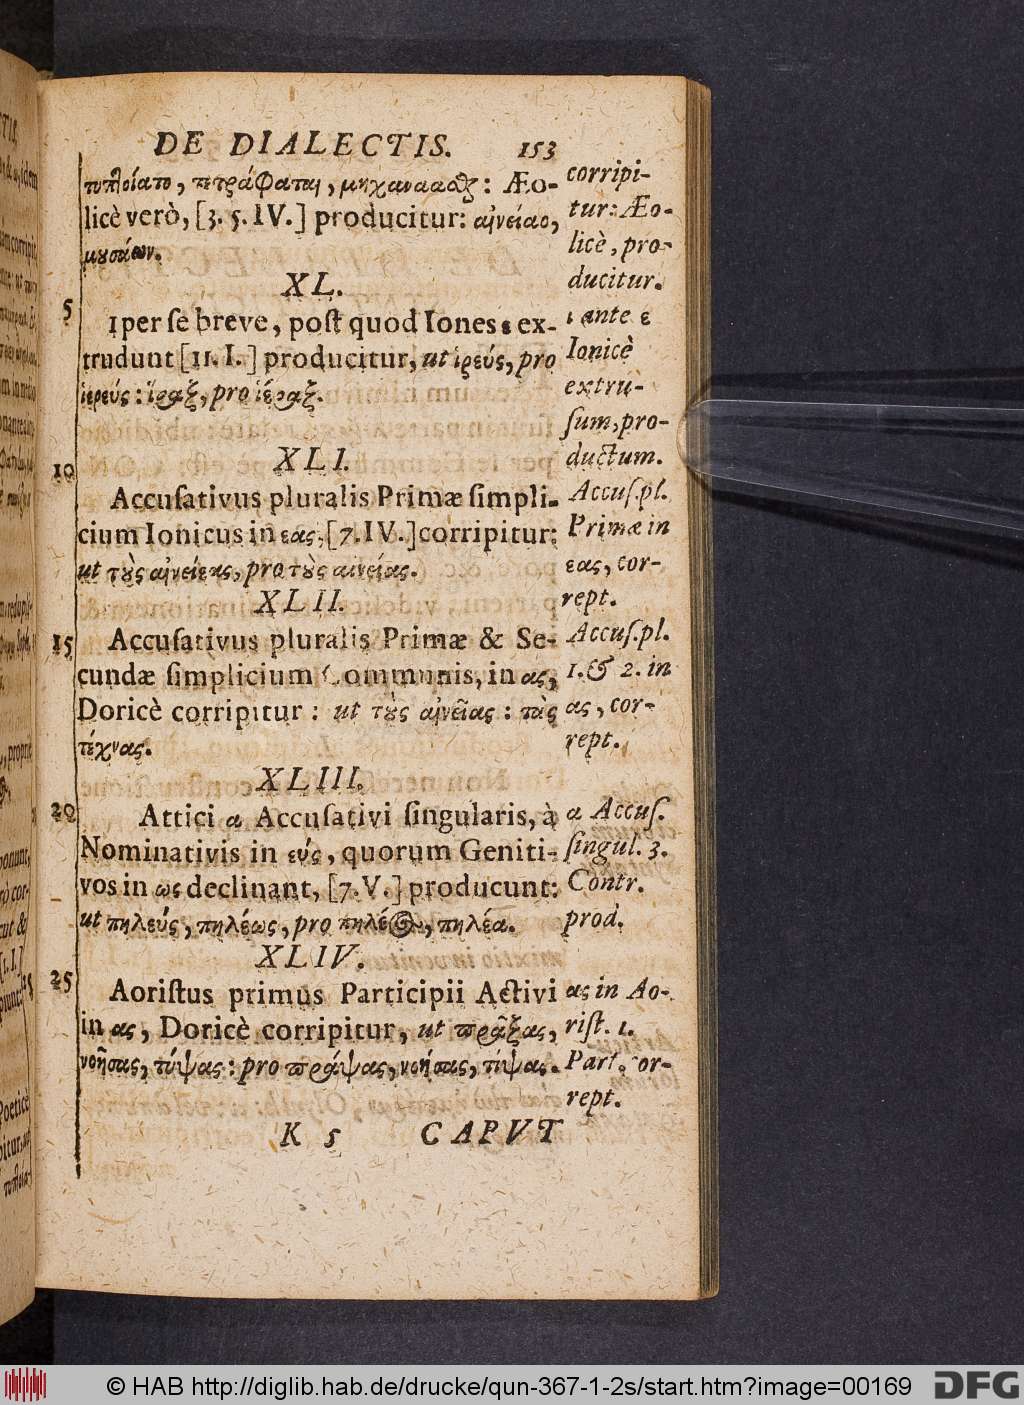 DE DIALECTIS. 153
τυπλοίατο, πετράφαται, μηχανάαθαι: Æo-
licè verò, [3. 5. IV.] producitur: αἰνείαο,
μουσάων.
XL.
I per ſe breve, poſt quod Iones ε ex-
trudunt [11. I.] producitur, ut ἱρεύς, pro
ἱερεύς: ἵραξ, pro ἱέραξ.
XLI.
Accuſativus pluralis Primæ ſimpli-
cium Ionicus in εας, [7. IV.] corripitur:
ut τοὺς αἰνείεας, pro τοὺς αἰνείας.
XLII.
Accuſativus pluralis Primæ & Se-
cundæ ſimplicium Communis, in ας,
Doricè corripitur: ut τοὺς αἰνεῖας: τὰς
τέχνας.
XLIII.
Attici α Accuſativi ſingularis, à
Nominativis in εύς, quorum Geniti-
vos in ως declinant, [7. V.] producunt:
ut πηλεύς, πηλέως, pro πηλέος, πηλέα.
XLIV.
Aoriſtus primus Participii Activi
in ας, Doricè corripitur, ut πρᾶξας,
νοῆσας, τύψας: pro πράψας, νοήσας, τύψας.
K 5 CAPVT
corripi-
tur: Æo-
licè, pro-
ducitur.
ι ante ε
Ionicè
extru-
ſum, pro-
ductum.
Accuſ. pl.
Primæ in
εας, cor-
rept.
Accuſ. pl.
1. & 2. in
ας, cor-
rept.
α Accuſ.
ſingul. 3.
Contr.
prod.
ας in Ao-
riſt. 1.
Part. cor-
rept.
5
10
15
20
25
© HAB http://diglib.hab.de/drucke/qun-367-1-2s/start.htm?image=00169
DFG